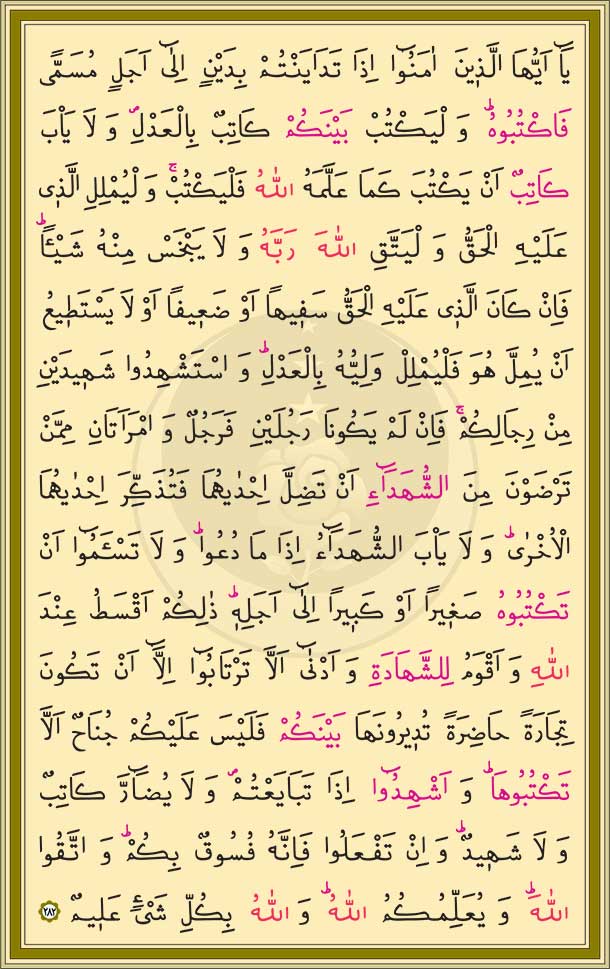 يَٓا اَيُّهَا الَّذ۪ينَ اٰمَنُٓوا اِذَا تَدَايَنْتُمْ بِدَيْنٍ اِلٰٓى اَجَلٍ مُسَمًّى
فَاكْتُبُوهُۜ وَ لْيَكْتُبْ بَيْنَكُمْ كَاتِبٌ بِالْعَدْلِۖ وَ لَا يَاْبَ
كَاتِبٌ اَنْ يَكْتُبَ كَمَا عَلَّمَهُ اللّٰهُ فَلْيَكْتُبْۚ وَ لْيُمْلِلِ الَّذ۪ي
عَلَيْهِ الْحَقُّ وَ لْيَتَّقِ اللّٰهَ رَبَّهُ وَ لَا يَبْخَسْ مِنْهُ شَيْـًٔاۜ
فَاِنْ كَانَ الَّذ۪ي عَلَيْهِ الْحَقُّ سَف۪يهًا اَوْ ضَع۪يفًا اَوْ لَا يَسْتَط۪يعُ
اَنْ يُمِلَّ هُوَ فَلْيُمْلِلْ وَلِيُّهُ بِالْعَدْلِۜ وَ اسْتَشْهِدُوا شَه۪يدَيْنِ
مِنْ رِجَالِكُمْۚ فَاِنْ لَمْ يَكُونَا رَجُلَيْنِ فَرَجُلٌ وَ امْرَاَتَانِ مِمَّنْ
تَرْضَوْنَ مِنَ الشُّهَدَٓاءِ اَنْ تَضِلَّ اِحْدٰيهُمَا فَتُذَكِّرَ اِحْدٰيهُمَا
الْاُخْرٰىۜ وَ لَا يَاْبَ الشُّهَدَٓاءُ اِذَا مَا دُعُواۜ وَ لَا تَسْـَٔمُٓوا اَنْ
تَكْتُبُوهُ صَغ۪يرًا اَوْ كَب۪يرًا اِلٰٓى اَجَلِه۪ۜ ذٰلِكُمْ اَقْسَطُ عِنْدَ
اللّٰهِ وَ اَقْوَمُ لِلشَّهَادَةِ وَ اَدْنٰٓى اَلَّا تَرْتَابُٓوا اِلَّٓا اَنْ تَكُونَ
تِجَارَةً حَاضِرَةً تُد۪يرُونَهَا بَيْنَكُمْ فَلَيْسَ عَلَيْكُمْ جُنَاحٌ اَلَّا
تَكْتُبُوهَاۜ وَ اَشْهِدُٓوا اِذَا تَبَايَعْتُمْۖ وَ لَا يُضَٓارَّ كَاتِبٌ
وَ لَا شَه۪يدٌۜ وَ اِنْ تَفْعَلُوا فَاِنَّهُ فُسُوقٌ بِكُمْۜ وَ اتَّقُوا
اللّٰهَۜ وَ يُعَلِّمُكُمُ اللّٰهُۜ وَ اللّٰهُ بِكُلِّ شَيْءٍ عَل۪يمٌ ٢٨٢